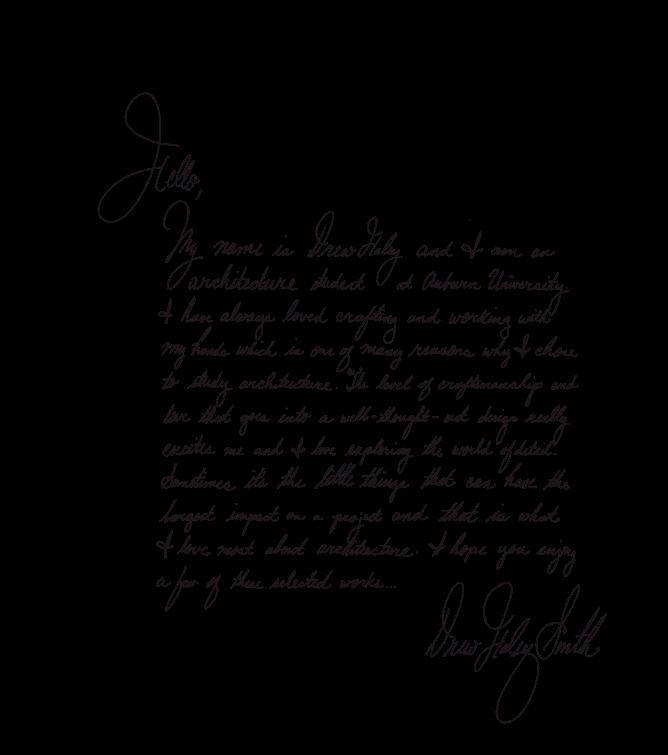 Hello,
My name is Drew Haley and I am an
architecture student at Auburn University.
I have always loved crafting and working with
my hands which is one of many reasons why I chose
to study architecture. The level of craftsmanship and
love that goes into a well-thought-out design really
excites me and I love exploring the world of detail.
Sometimes it's the little things that can have the
largest impact on a project and that is what
I love most about architecture. I hope you enjoy
a few of these selected works...
Drew Haley Smith